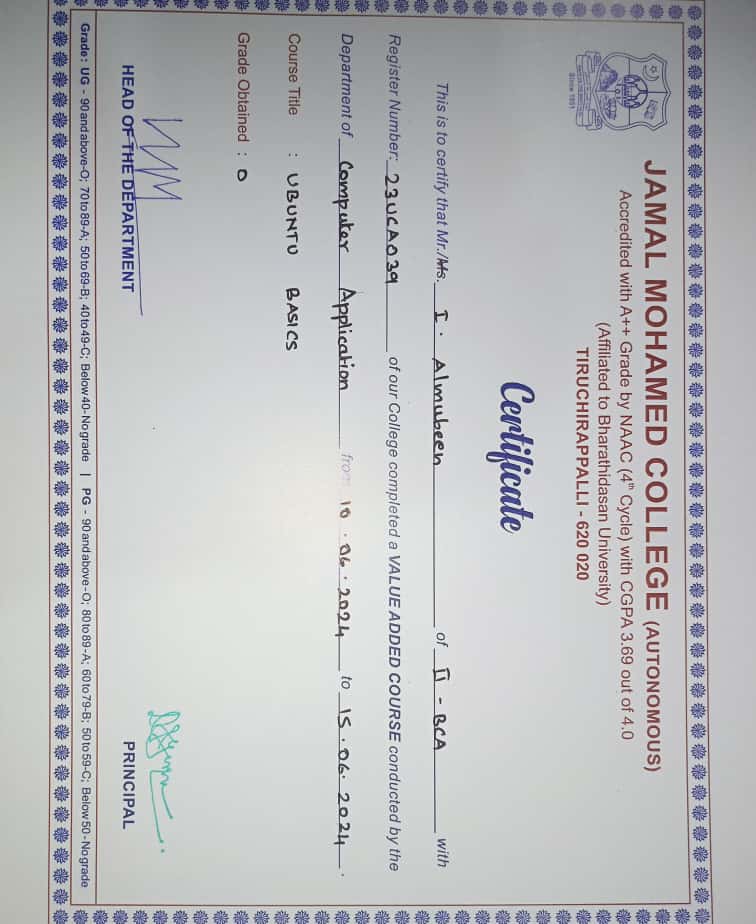 JAMAL MOHAMED COLLEGE (AUTONOMOUS)
Accredited with A++ Grade by NAAC (4th Cycle) with CGPA 3.69 out of 4.0
(Affiliated to Bharathidasan University)
TIRUCHIRAPPALLI - 620 020
Since 1951
Certificate
This is to certify that Mr./Ms. I . Almubeen of II - BCA with
Register Number: 23UCA039 of our College completed a VALUE ADDED COURSE conducted by the
Department of Computer Application from 10 . 06 . 2024 to 15 . 06 . 2024 .
Course Title : UBUNTU BASICS
Grade Obtained : O
HEAD OF THE DEPARTMENT
PRINCIPAL
Grade: UG - 90 and above-O; 70 to 89-A; 50 to 69-B; 40 to 49-C; Below 40-No grade | PG - 90 and above-O; 80 to 89-A; 60 to 79-B; 50 to 59-C; Below 50-No grade